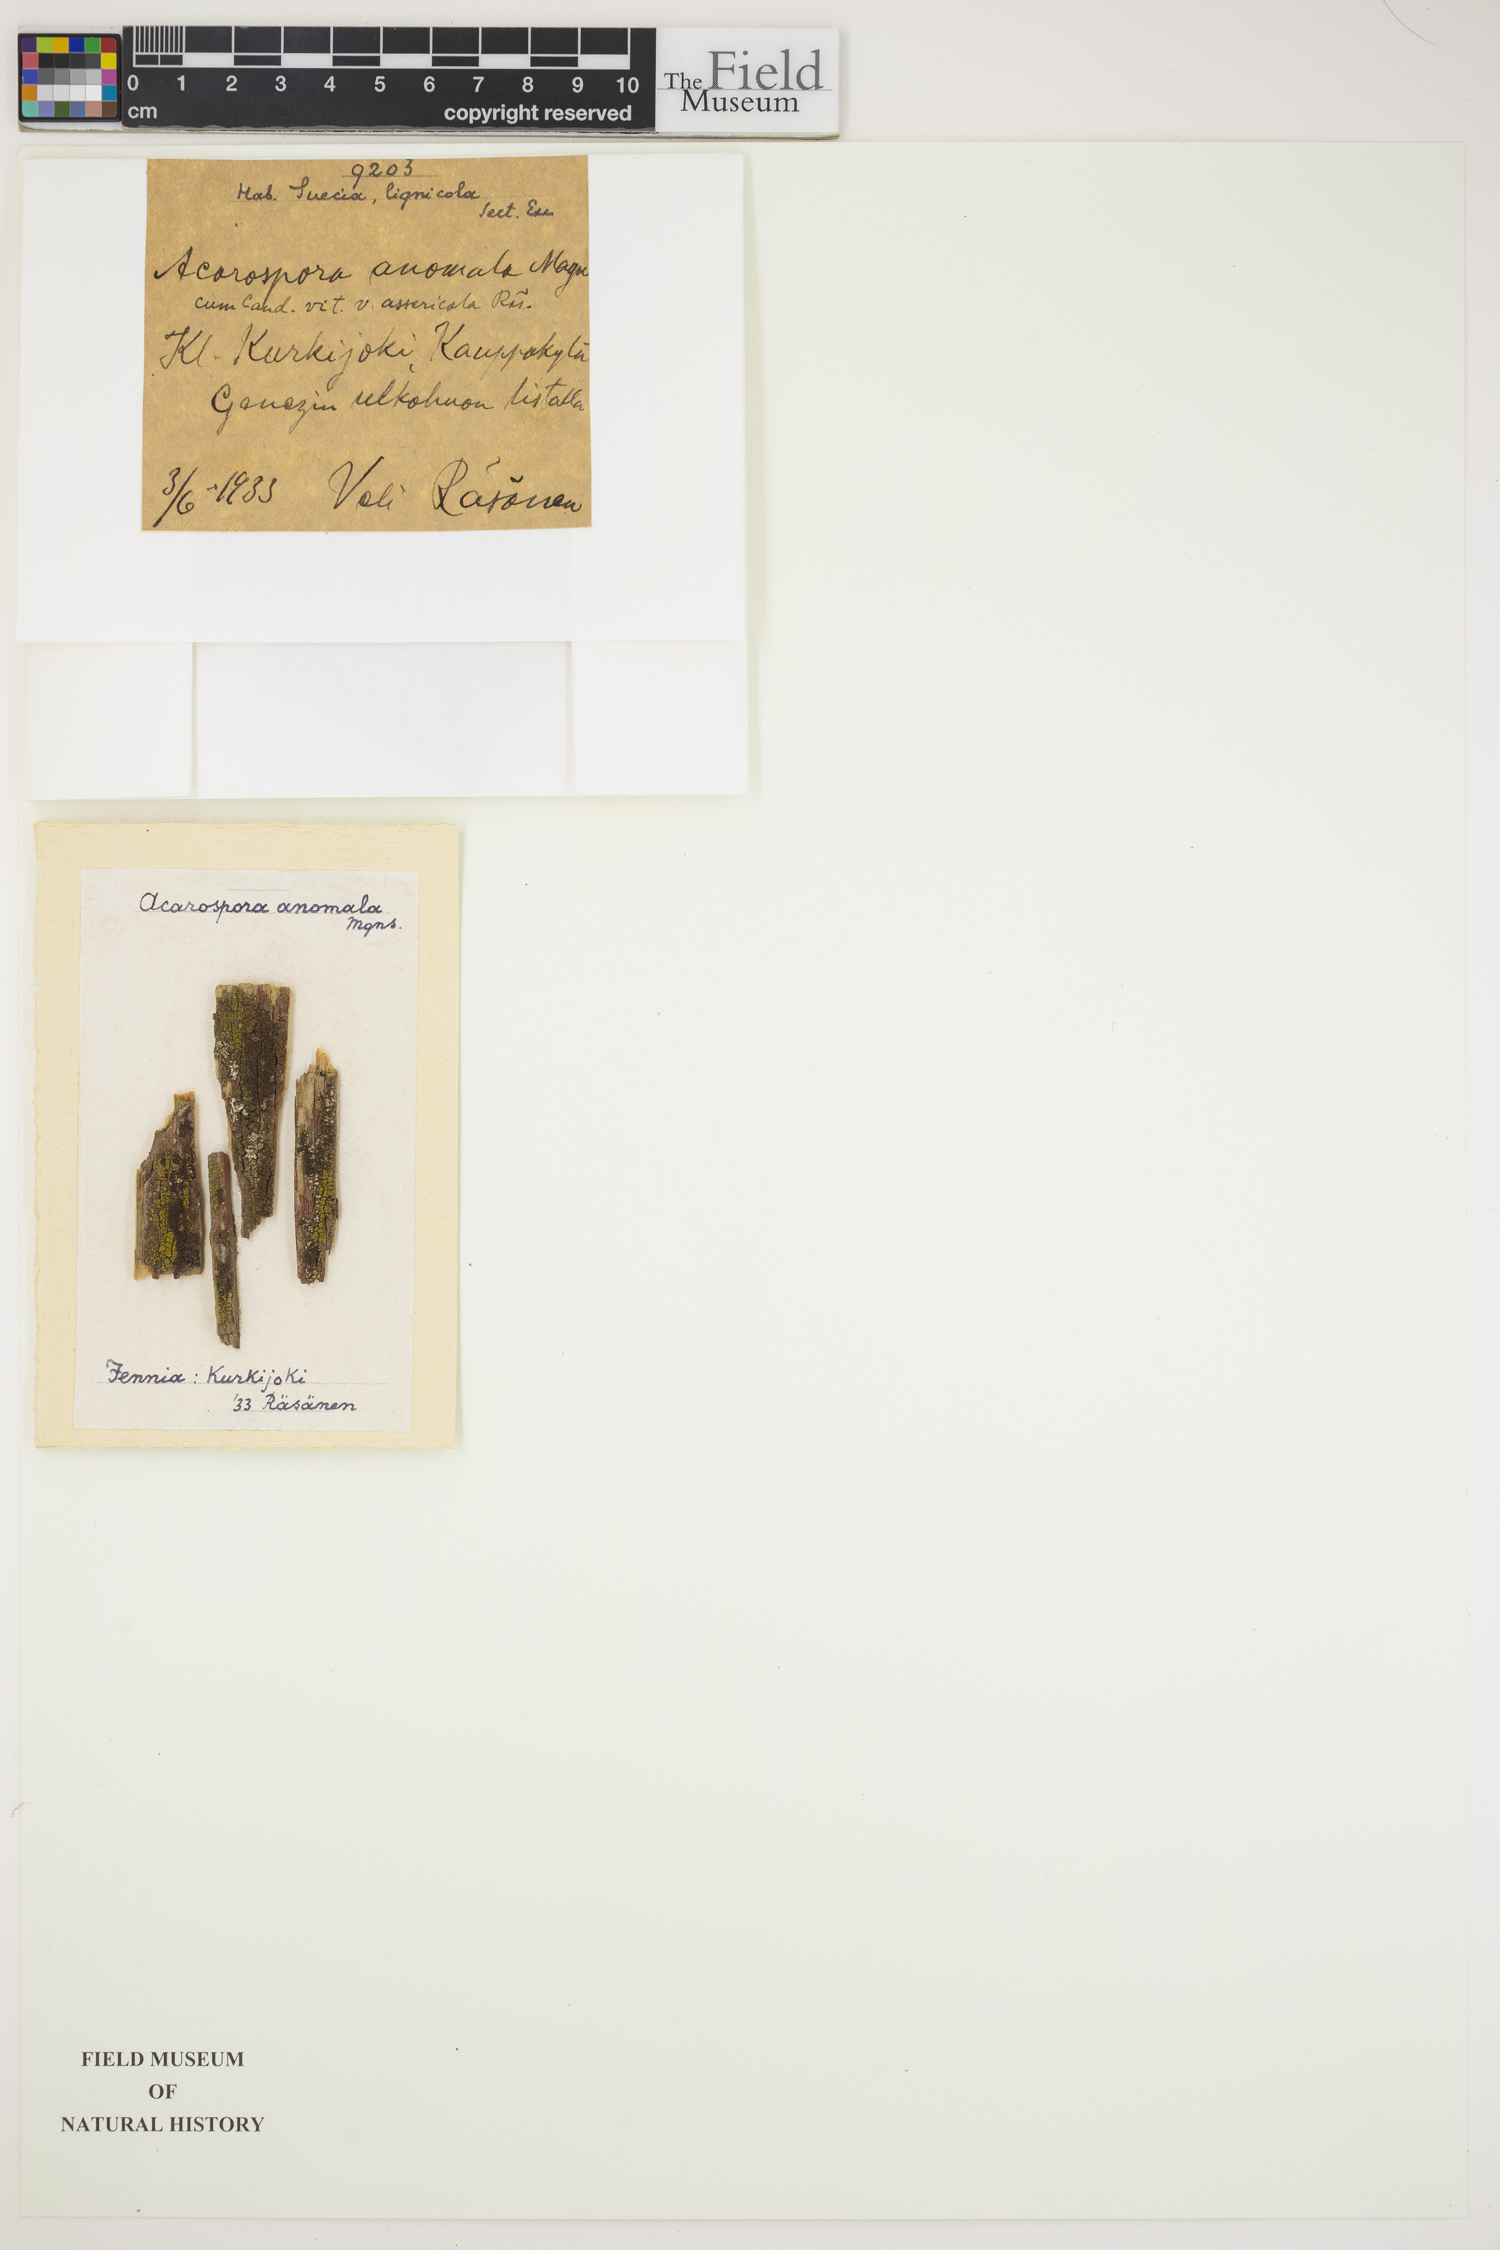 0 1 2 3 4 5 6 7 8 9 10
cm
copyright reserved
The Field
Museum
9203
Hab. Suecia, lignicola
Sect. Eu
Acarospora anomala Magn
cum Cand. vit. v. assericola Räs.
Kl. Kurkijoki, Kauppakylä
ulkohuon listalla
3/6 -1933 Veli Räsänen
Acarospora anomala
Mgns.
Fennia: Kurkijoki
'33 Räsänen
FIELD MUSEUM
OF
NATURAL HISTORY